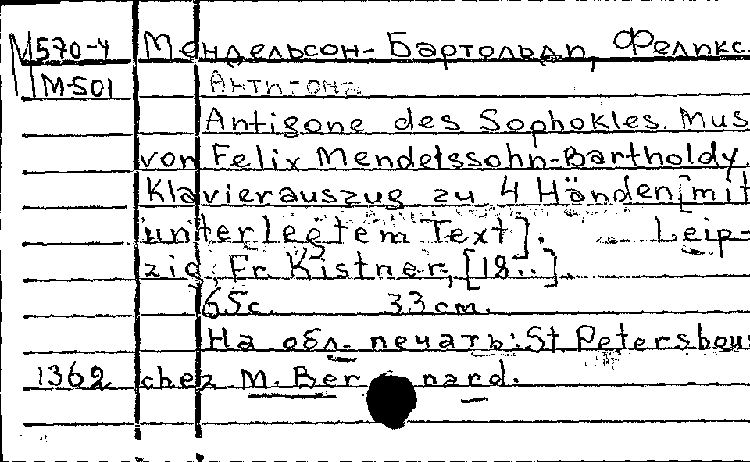 М570-4 Мендельсон-Бартольди, Феликс
М-501 Антигона
Antigone des Sophokles. Mus
von Felix Mendelssohn-Bartholdy
Klavierauszug zu 4 Händen [mit
unterlegtem Text]. Leip-
zig, Fr. Kistner, [18..].
65с. 33 см.
На обл. печать: St Petersbou
1362 chez M. Bernard.